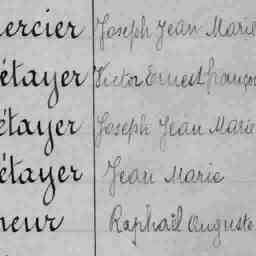 ercier Joseph Jean Marie
étayer Victor Ernest françois
étayer Joseph Jean Marie
étayer Jean Marie
neur Raphaël Auguste